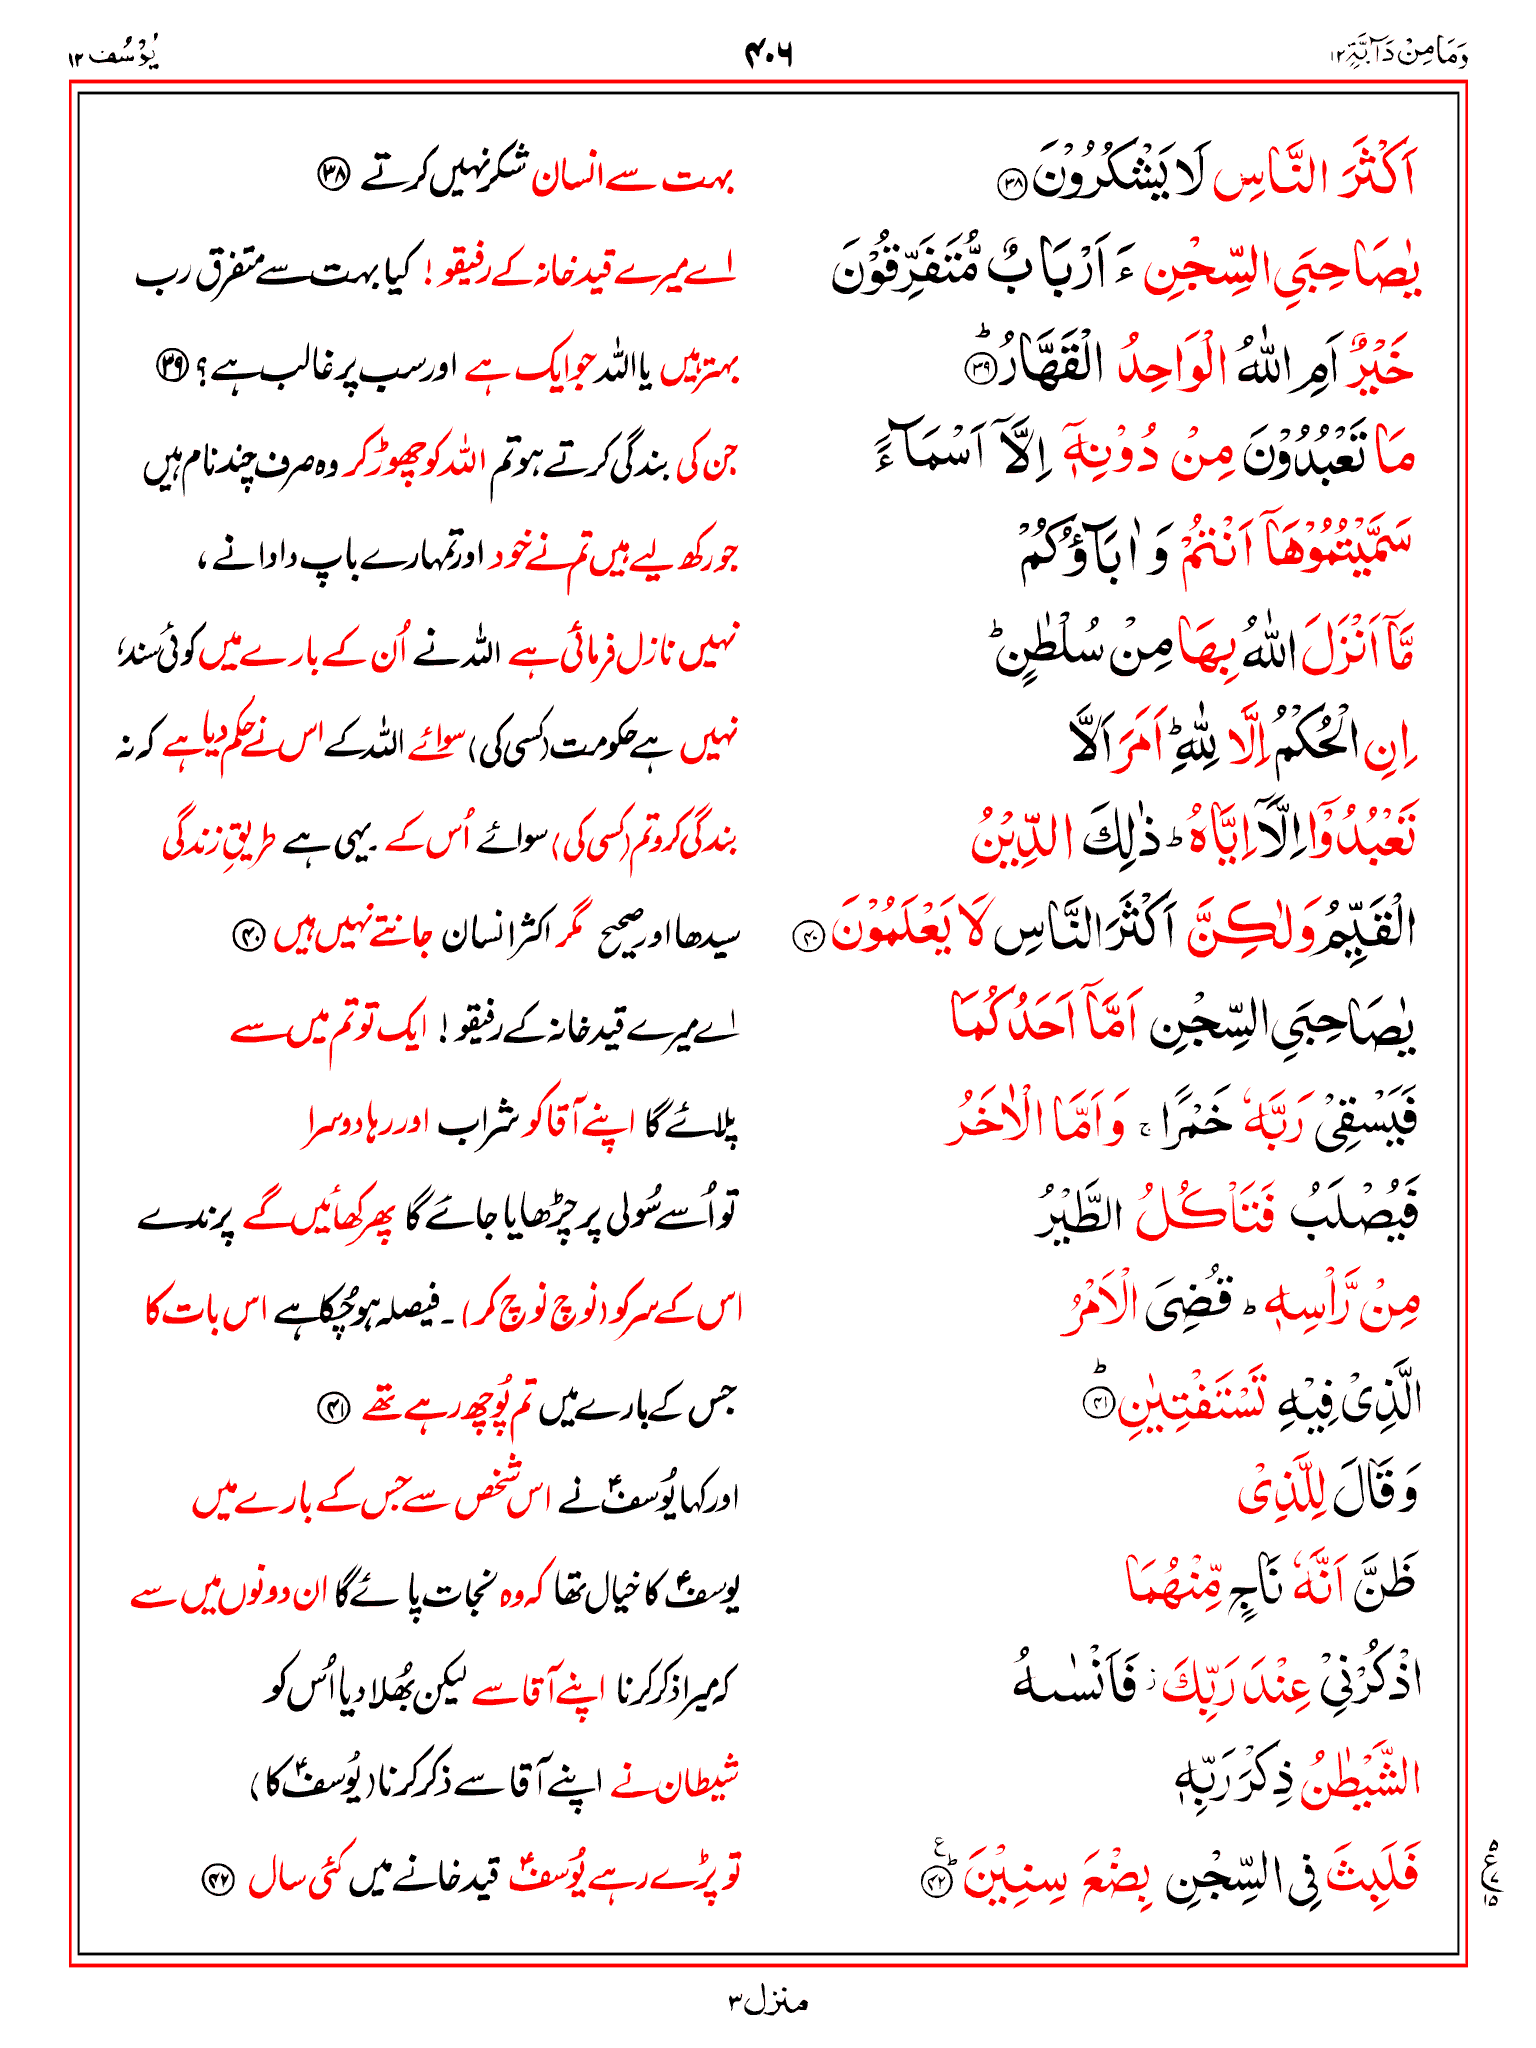 وَمَا مِنْ دَآبَّةٍ ۱۲ ۴۰۶ یُوْسُف ۱۲
اَكْثَرَ النَّاسِ لَا یَشْكُرُوْنَ ۳۸ بہت سے انسان شکر نہیں کرتے ۳۸
یٰصَاحِبَیِ السِّجْنِ ءَ اَرْبَابٌ مُّتَفَرِّقُوْنَ اے میرے قید خانہ کے رفیقو! کیا بہت سے متفرق رب
خَیْرٌ اَمِ اللّٰهُ الْوَاحِدُ الْقَهَّارُ ؕ۳۹ بہتر ہیں یا اللہ جو ایک ہے اور سب پر غالب ہے؟ ۳۹
مَا تَعْبُدُوْنَ مِنْ دُوْنِهٖۤ اِلَّاۤ اَسْمَآءً جن کی بندگی کرتے ہو تم اللہ کو چھوڑ کر وہ صرف چند نام ہیں
سَمَّیْتُمُوْهَاۤ اَنْتُمْ وَ اٰبَآؤُكُمْ جو رکھ لیے ہیں تم نے خود اور تمہارے باپ دادا نے،
مَّاۤ اَنْزَلَ اللّٰهُ بِهَا مِنْ سُلْطٰنٍ ؕ نہیں نازل فرمائی ہے اللہ نے اُن کے بارے میں کوئی سند،
اِنِ الْحُكْمُ اِلَّا لِلّٰهِ ؕ اَمَرَ اَلَّا نہیں ہے حکومت (کسی کی) سوائے اللہ کے اس نے حکم دیا ہے کہ نہ
تَعْبُدُوْۤا اِلَّاۤ اِیَّاهُ ؕ ذٰلِكَ الدِّیْنُ بندگی کرو تم (کسی کی) سوائے اُس کے ۔ یہی ہے طریقِ زندگی
الْقَیِّمُ وَلٰكِنَّ اَكْثَرَ النَّاسِ لَا یَعْلَمُوْنَ ۴۰ سیدھا اور صحیح مگر اکثر انسان جانتے نہیں ہیں ۴۰
یٰصَاحِبَیِ السِّجْنِ اَمَّاۤ اَحَدُكُمَا اے میرے قید خانہ کے رفیقو! ایک تو تم میں سے
فَیَسْقِیْ رَبَّهٗ خَمْرًا ۚ وَ اَمَّا الْاٰخَرُ پلائے گا اپنے آقا کو شراب اور رہا دوسرا
فَیُصْلَبُ فَتَاْكُلُ الطَّیْرُ تو اُسے سُولی پر چڑھایا جائے گا پھر کھائیں گے پرندے
مِنْ رَّاْسِهٖ ؕ قُضِیَ الْاَمْرُ اس کے سر کو (نوچ نوچ کر) ۔ فیصلہ ہو چُکا ہے اس بات کا
الَّذِیْ فِیْهِ تَسْتَفْتِیٰنِ ؕ۴۱ جس کے بارے میں تم پُوچھ رہے تھے ۴۱
وَقَالَ لِلَّذِیْ اور کہا یُوسفؑ نے اس شخص سے جس کے بارے میں
ظَنَّ اَنَّهٗ نَاجٍ مِّنْهُمَا یوسفؑ کا خیال تھا کہ وہ نجات پائے گا ان دونوں میں سے
اذْكُرْنِیْ عِنْدَ رَبِّكَ ؗ فَاَنْسٰىهُ کہ میرا ذکر کرنا اپنے آقا سے لیکن بھُلا دیا اُس کو
الشَّیْطٰنُ ذِكْرَ رَبِّهٖ شیطان نے اپنے آقا سے ذکر کرنا (یُوسفؑ کا)
فَلَبِثَ فِی السِّجْنِ بِضْعَ سِنِیْنَ ؕ۴۲ ع تو پڑے رہے یُوسفؑ قید خانے میں کئی سال ۴۲
منزل ۳